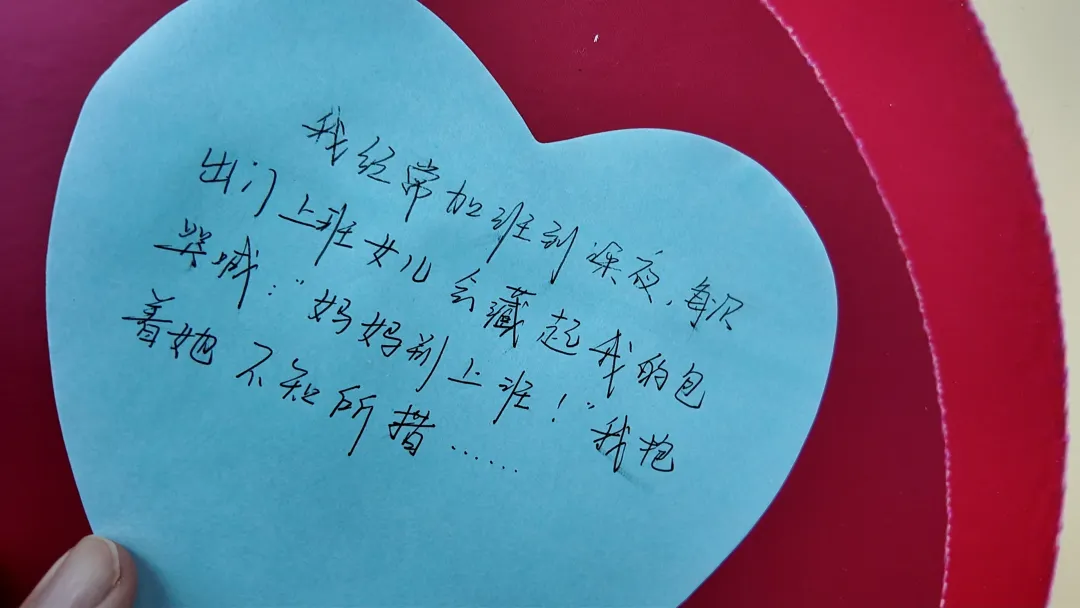 我经常加班到深夜，每次
出门上班女儿会藏起我的包
哭喊："妈妈别上班！"我抱
着她不知所措……